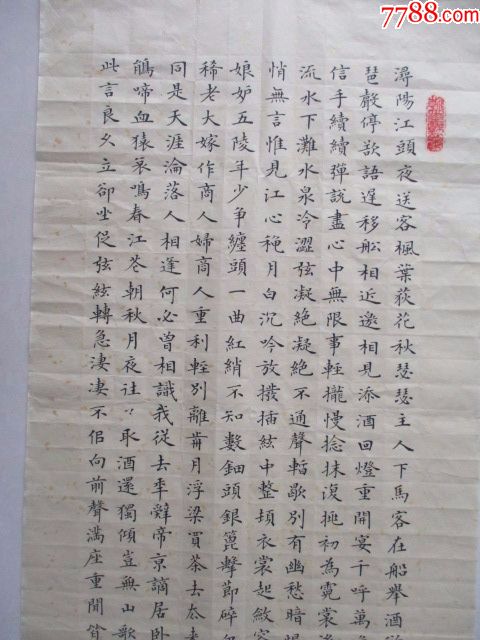 7788.com
潯陽江頭夜送客楓葉荻花秋瑟瑟主人下馬客在船舉酒
琶聲停欲語遲移船相近邀相見添酒回燈重開宴千呼萬
信手續續彈說盡心中無限事輕攏慢捻抹復挑初為霓裳
流水下灘水泉冷澀弦凝絕凝絕不通聲暫歇別有幽愁暗
悄無言惟見江心秋月白沉吟放撥插絃中整頓衣裳起斂容
娘妒五陵年少爭纏頭一曲紅綃不知數鈿頭銀篦擊節碎
稀老大嫁作商人婦商人重利輕別離前月浮梁買茶去去
同是天涯淪落人相逢何必曾相識我從去年辭帝京謫居臥
鵑啼血猿哀鳴春江花朝秋月夜往〻取酒還獨傾豈無山歌
此言良久立卻坐促弦絃轉急淒淒不似向前聲滿座重聞皆